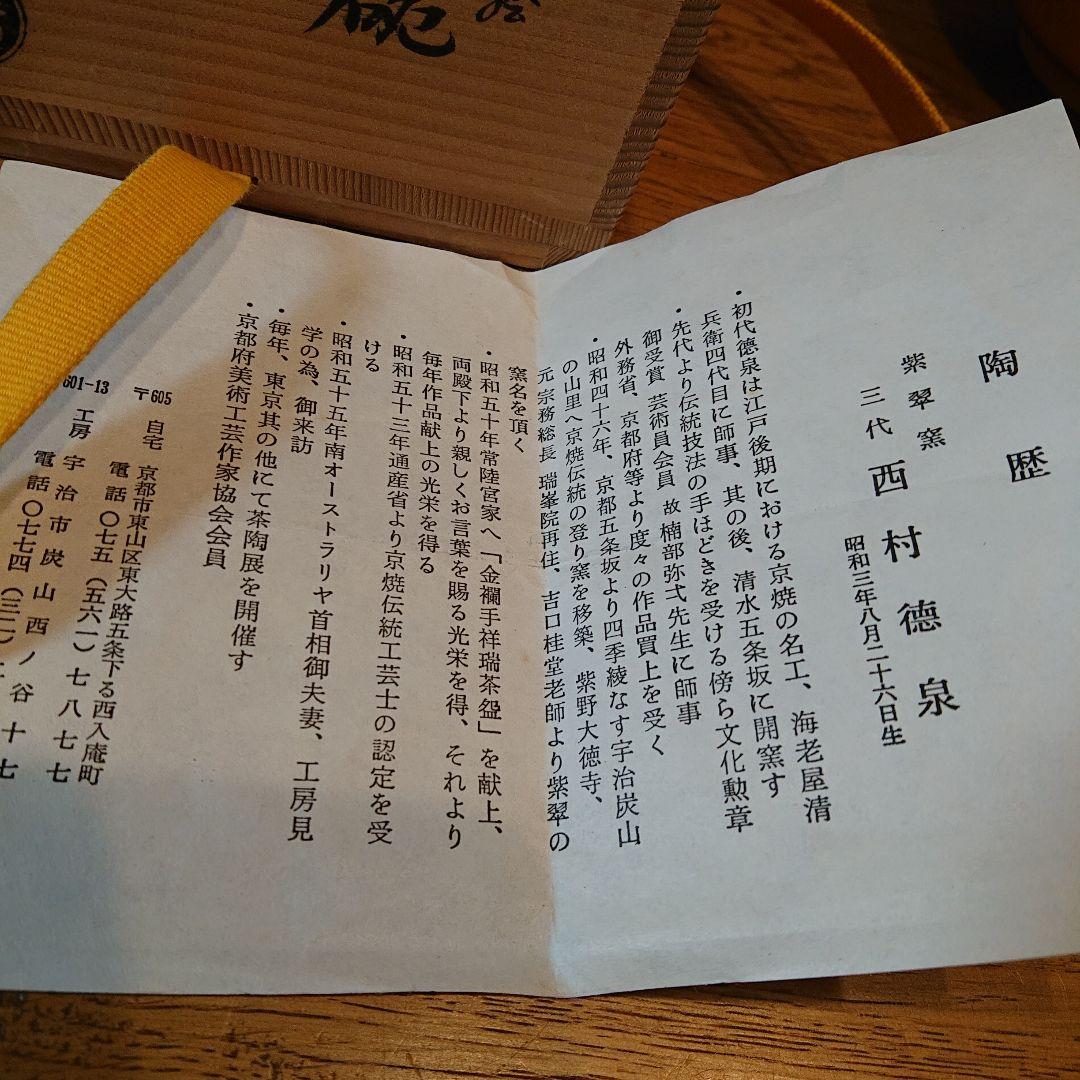 陶歴
紫翠窯
三代 西村徳泉
昭和三年八月二十六日生
・初代徳泉は江戸後期における京焼の名工、海老屋清
兵衛四代目に師事、其の後、清水五条坂に開窯す
・先代より伝統技法の手ほどきを受ける傍ら文化勲章
御受賞 芸術員会員 故 楠部弥弌 先生に師事
外務省、京都府等より度々の作品買上を受く
・昭和四十六年、京都五条坂より四季綾なす宇治炭山
の山里へ京焼伝統の登り窯を移築、紫野大徳寺、
元 宗務総長 瑞峯院再住、吉口桂堂老師より紫翠の
窯名を頂く
・昭和五十年常陸宮家へ「金襴手祥瑞茶盌」を献上、
両殿下より親しくお言葉を賜る光栄を得、それより
毎年作品献上の光栄を得る
・昭和五十三年通産省より京焼伝統工芸士の認定を受
ける
・昭和五十五年南オーストラリヤ首相御夫妻、工房見
学の為、御来訪
・毎年、東京其の他にて茶陶展を開催す
・京都府美術工芸作家協会会員
〒605 自宅 京都市東山区東大路五条下る西入庵町
電話〇七五(五六一)七八七七
601-13 工房 宇治市炭山西ノ谷十七
電話〇七七四(三二)